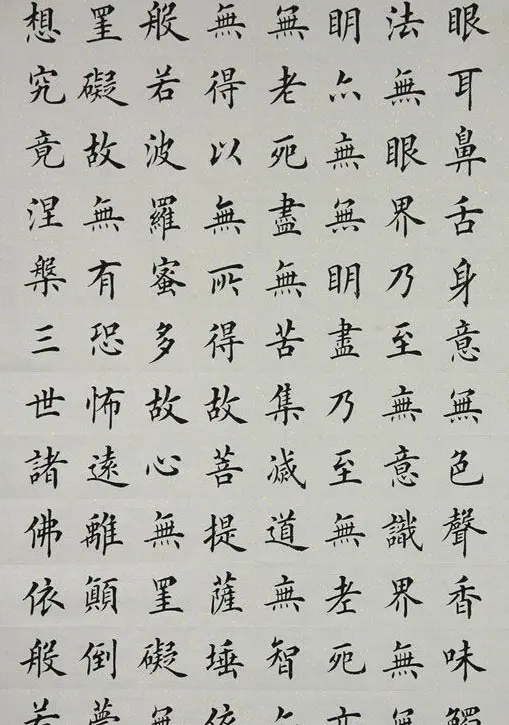 眼耳鼻舌身意無色聲香味觸
法無眼界乃至無意識界無無
明亦無無明盡乃至無老死亦
無老死盡無苦集滅道無智亦
無得以無所得故菩提薩埵依
般若波羅蜜多故心無罣礙無
罣礙故無有恐怖遠離顛倒夢
想究竟涅槃三世諸佛依般若